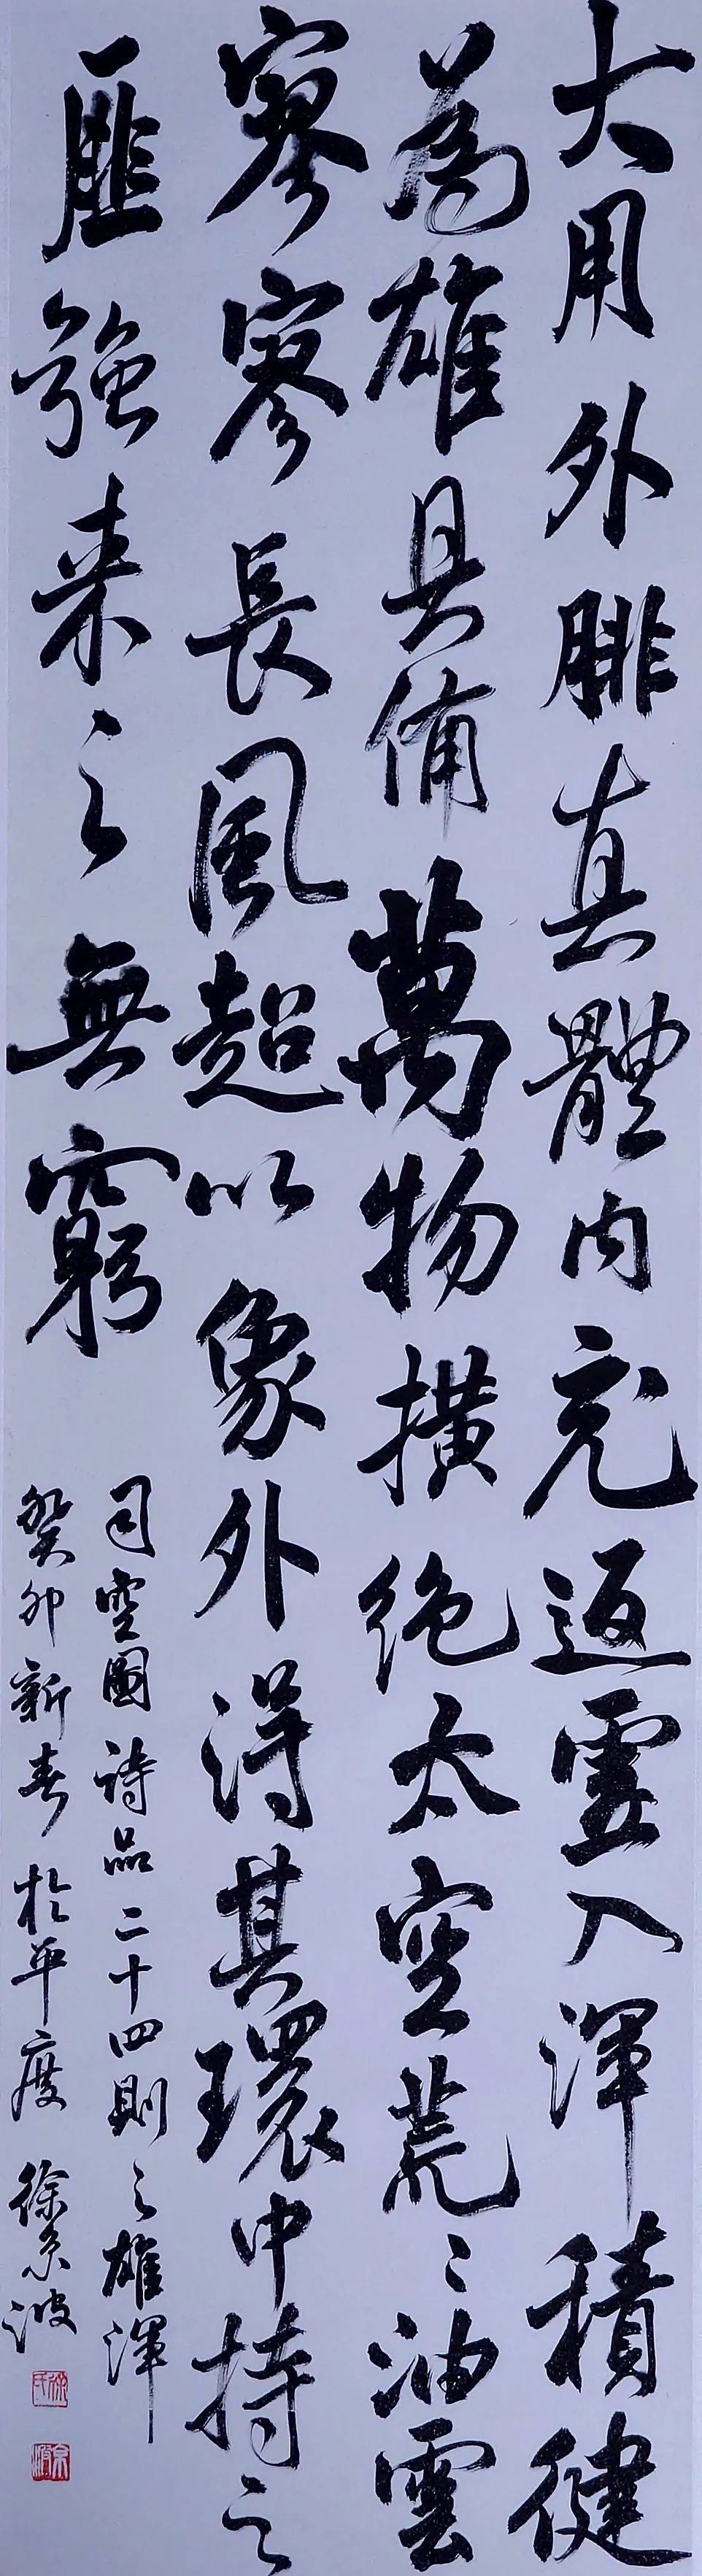 大用外腓真體內充返虛入渾積健
為雄具備萬物橫絕太空荒〻油雲
寥寥長風超以象外得其環中持之
匪強来之無窮
司空圖詩品二十四則之雄渾
癸卯新春於平度 徐京波
徐氏
京波